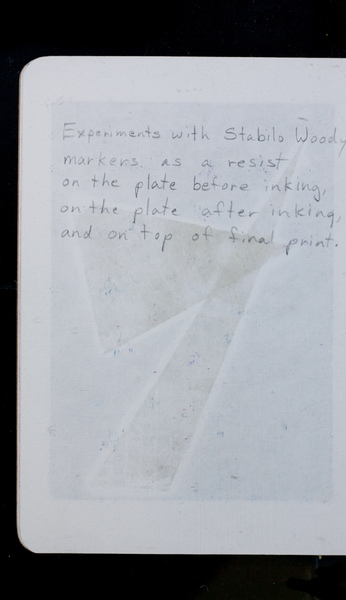 Experiments with Stabilo Woody
markers. as a resist
on the plate before inking,
on the plate after inking,
and on top of final print.